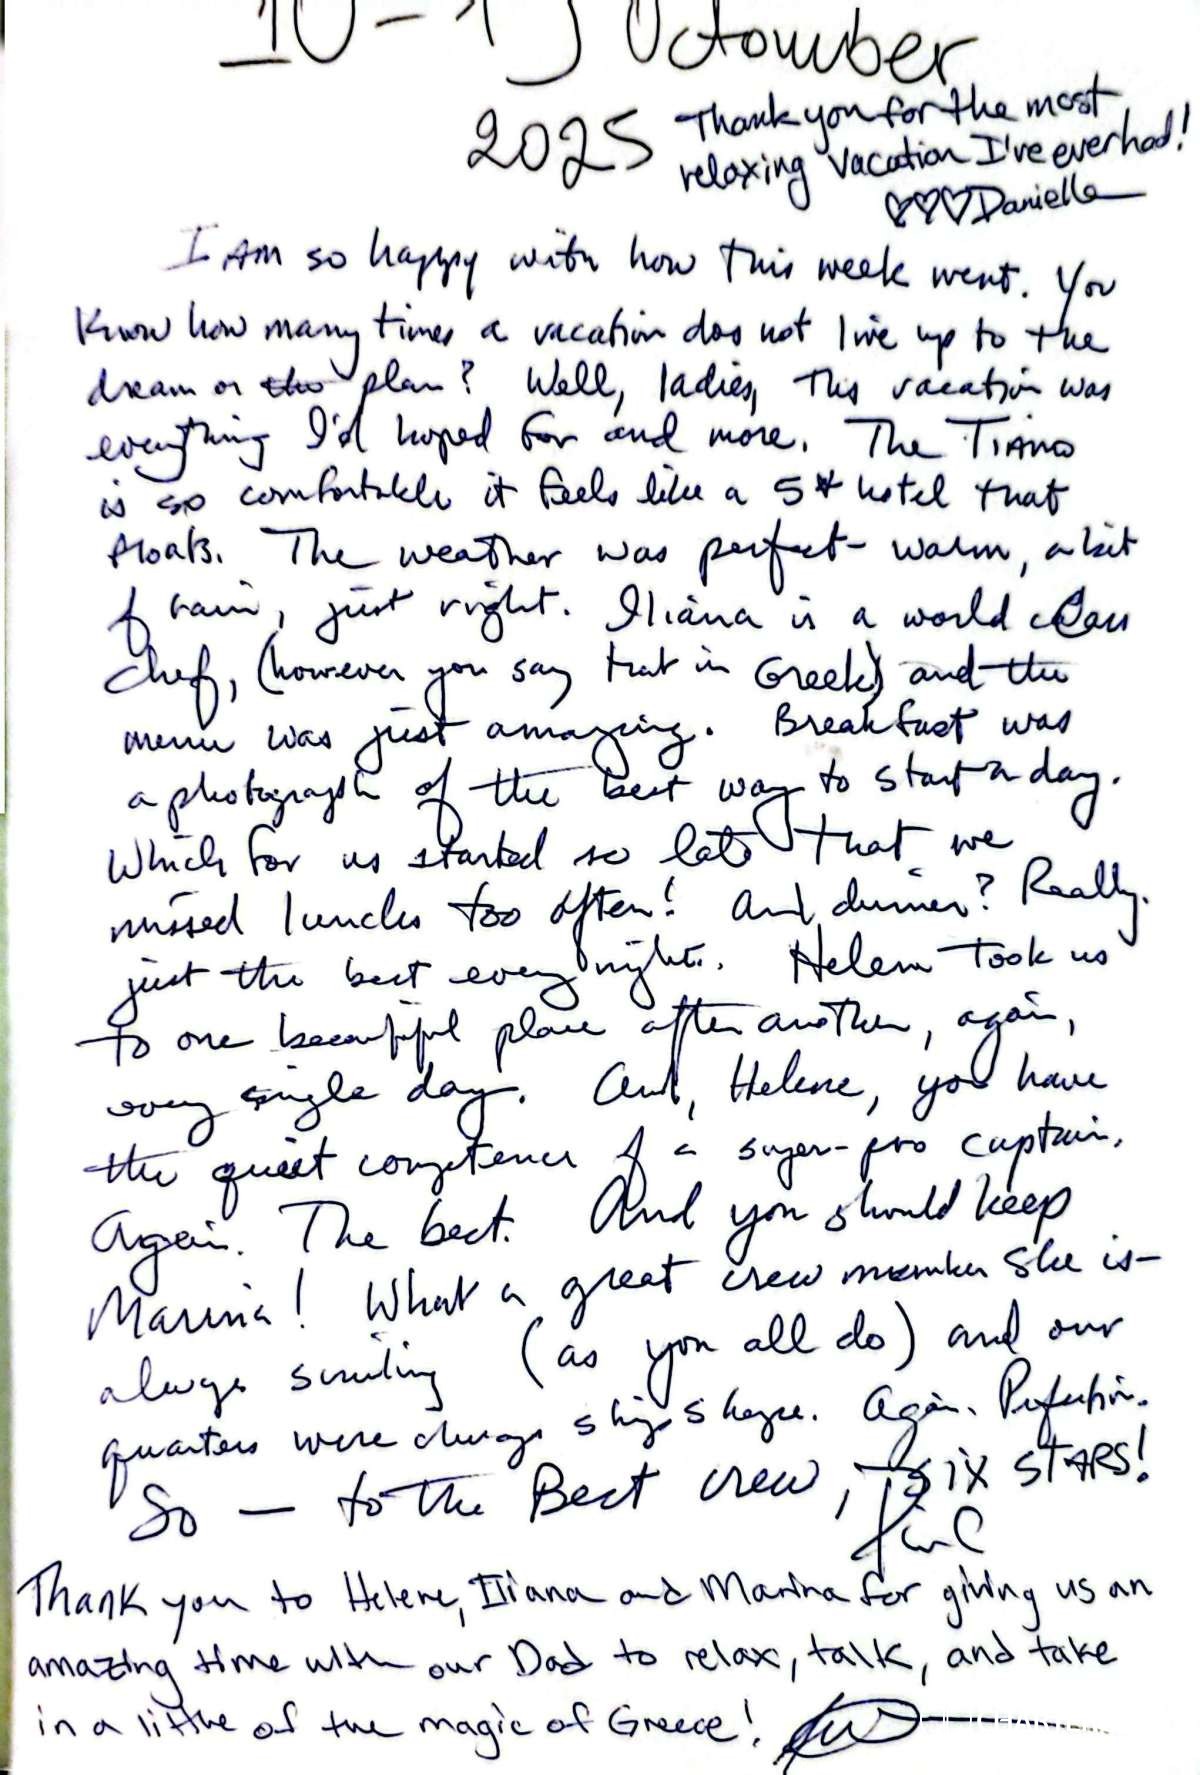 October
2025
Thank you for the most
relaxing vacation I've ever had!
♡♡♡ Danielle
I AM so happy with how this week went. You
know how many times a vacation does not live up to the
dream or the plan? Well, ladies, this vacation was
everything I'd hoped for and more. The TIANO
is so comfortable it feels like a 5* hotel that
floats. The weather was perfect - warm, a bit
of rain, just right. Iliana is a world class
chef, (however you say that in Greek) and the
menu was just amazing. Breakfast was
a photograph of the best way to start a day.
Which for us started so late that we
missed lunches too often! And dinner? Really.
just the best every night. Helene took us
to one beautiful place after another, again,
every single day. And, Helene, you have
the quiet competence of a super-pro captain.
Again. The best. And you should keep
Marina! What a great crew member she is -
always smiling (as you all do) and our
quarters were always shipshape. Again. Perfection.
So — to the Best crew, SIX STARS!
Thank you to Helene, Iliana and Marina for giving us an
amazing time with our Dad to relax, talk, and take
in a little of the magic of Greece!